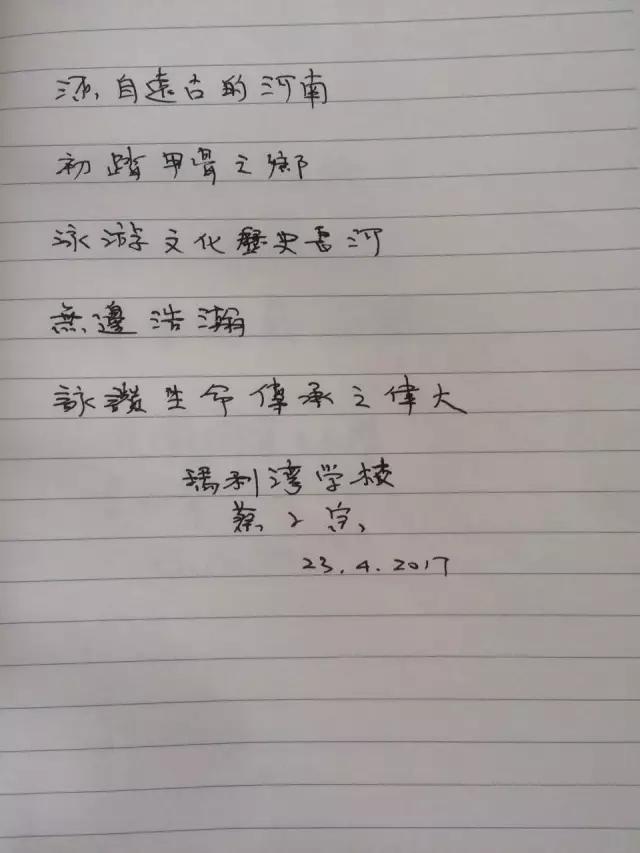 源自遠古的河南
初踏甲骨之鄉
泳游文化歷史長河
無邊浩瀚
詠讚生命傳承之偉大
利灣学校
蔡
23.4.2017